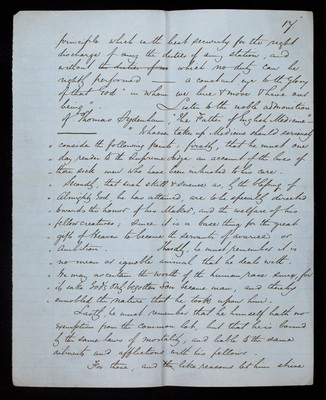 17
principle which is the best security for the right
discharge of any the duties of any station, and
without which no duty can be
rightly performed — a constant eye to the Glory
of that God "in whom we live & move & have our
being". Listen to the noble admonition
of Thomas Sydenham, "The Father of English Medicine"
"Whoever takes up Medicine should seriously
" consider the following points, firstly, that he must one
" day render to the Supreme Judge an account of the lives of
" those sick men who have been intrusted to his care.
" Secondly, that such skill & science as, by the blessing of
" Almighty God, he has attained, are to be specially directed
" towards the honour of his Maker, and the welfare of his
" fellow creatures; since it is a base thing for the great
" gifts of Heaven to become the servants of avarice or
" Ambition. Thirdly, he must remember it is
" no mean or ignoble animal that he deals with.
" We may ascertain the worth of the human race since, for
" its sake God's Only begotten Son became man, and thereby
" ennobled the nature that he took upon him.
Lastly, he must remember that he himself hath no
exemption from the common lot, but that he is bound
by the same laws of mortality, and liable to the same
ailments and afflictions with his fellows.
For these, and the like reasons let him strive